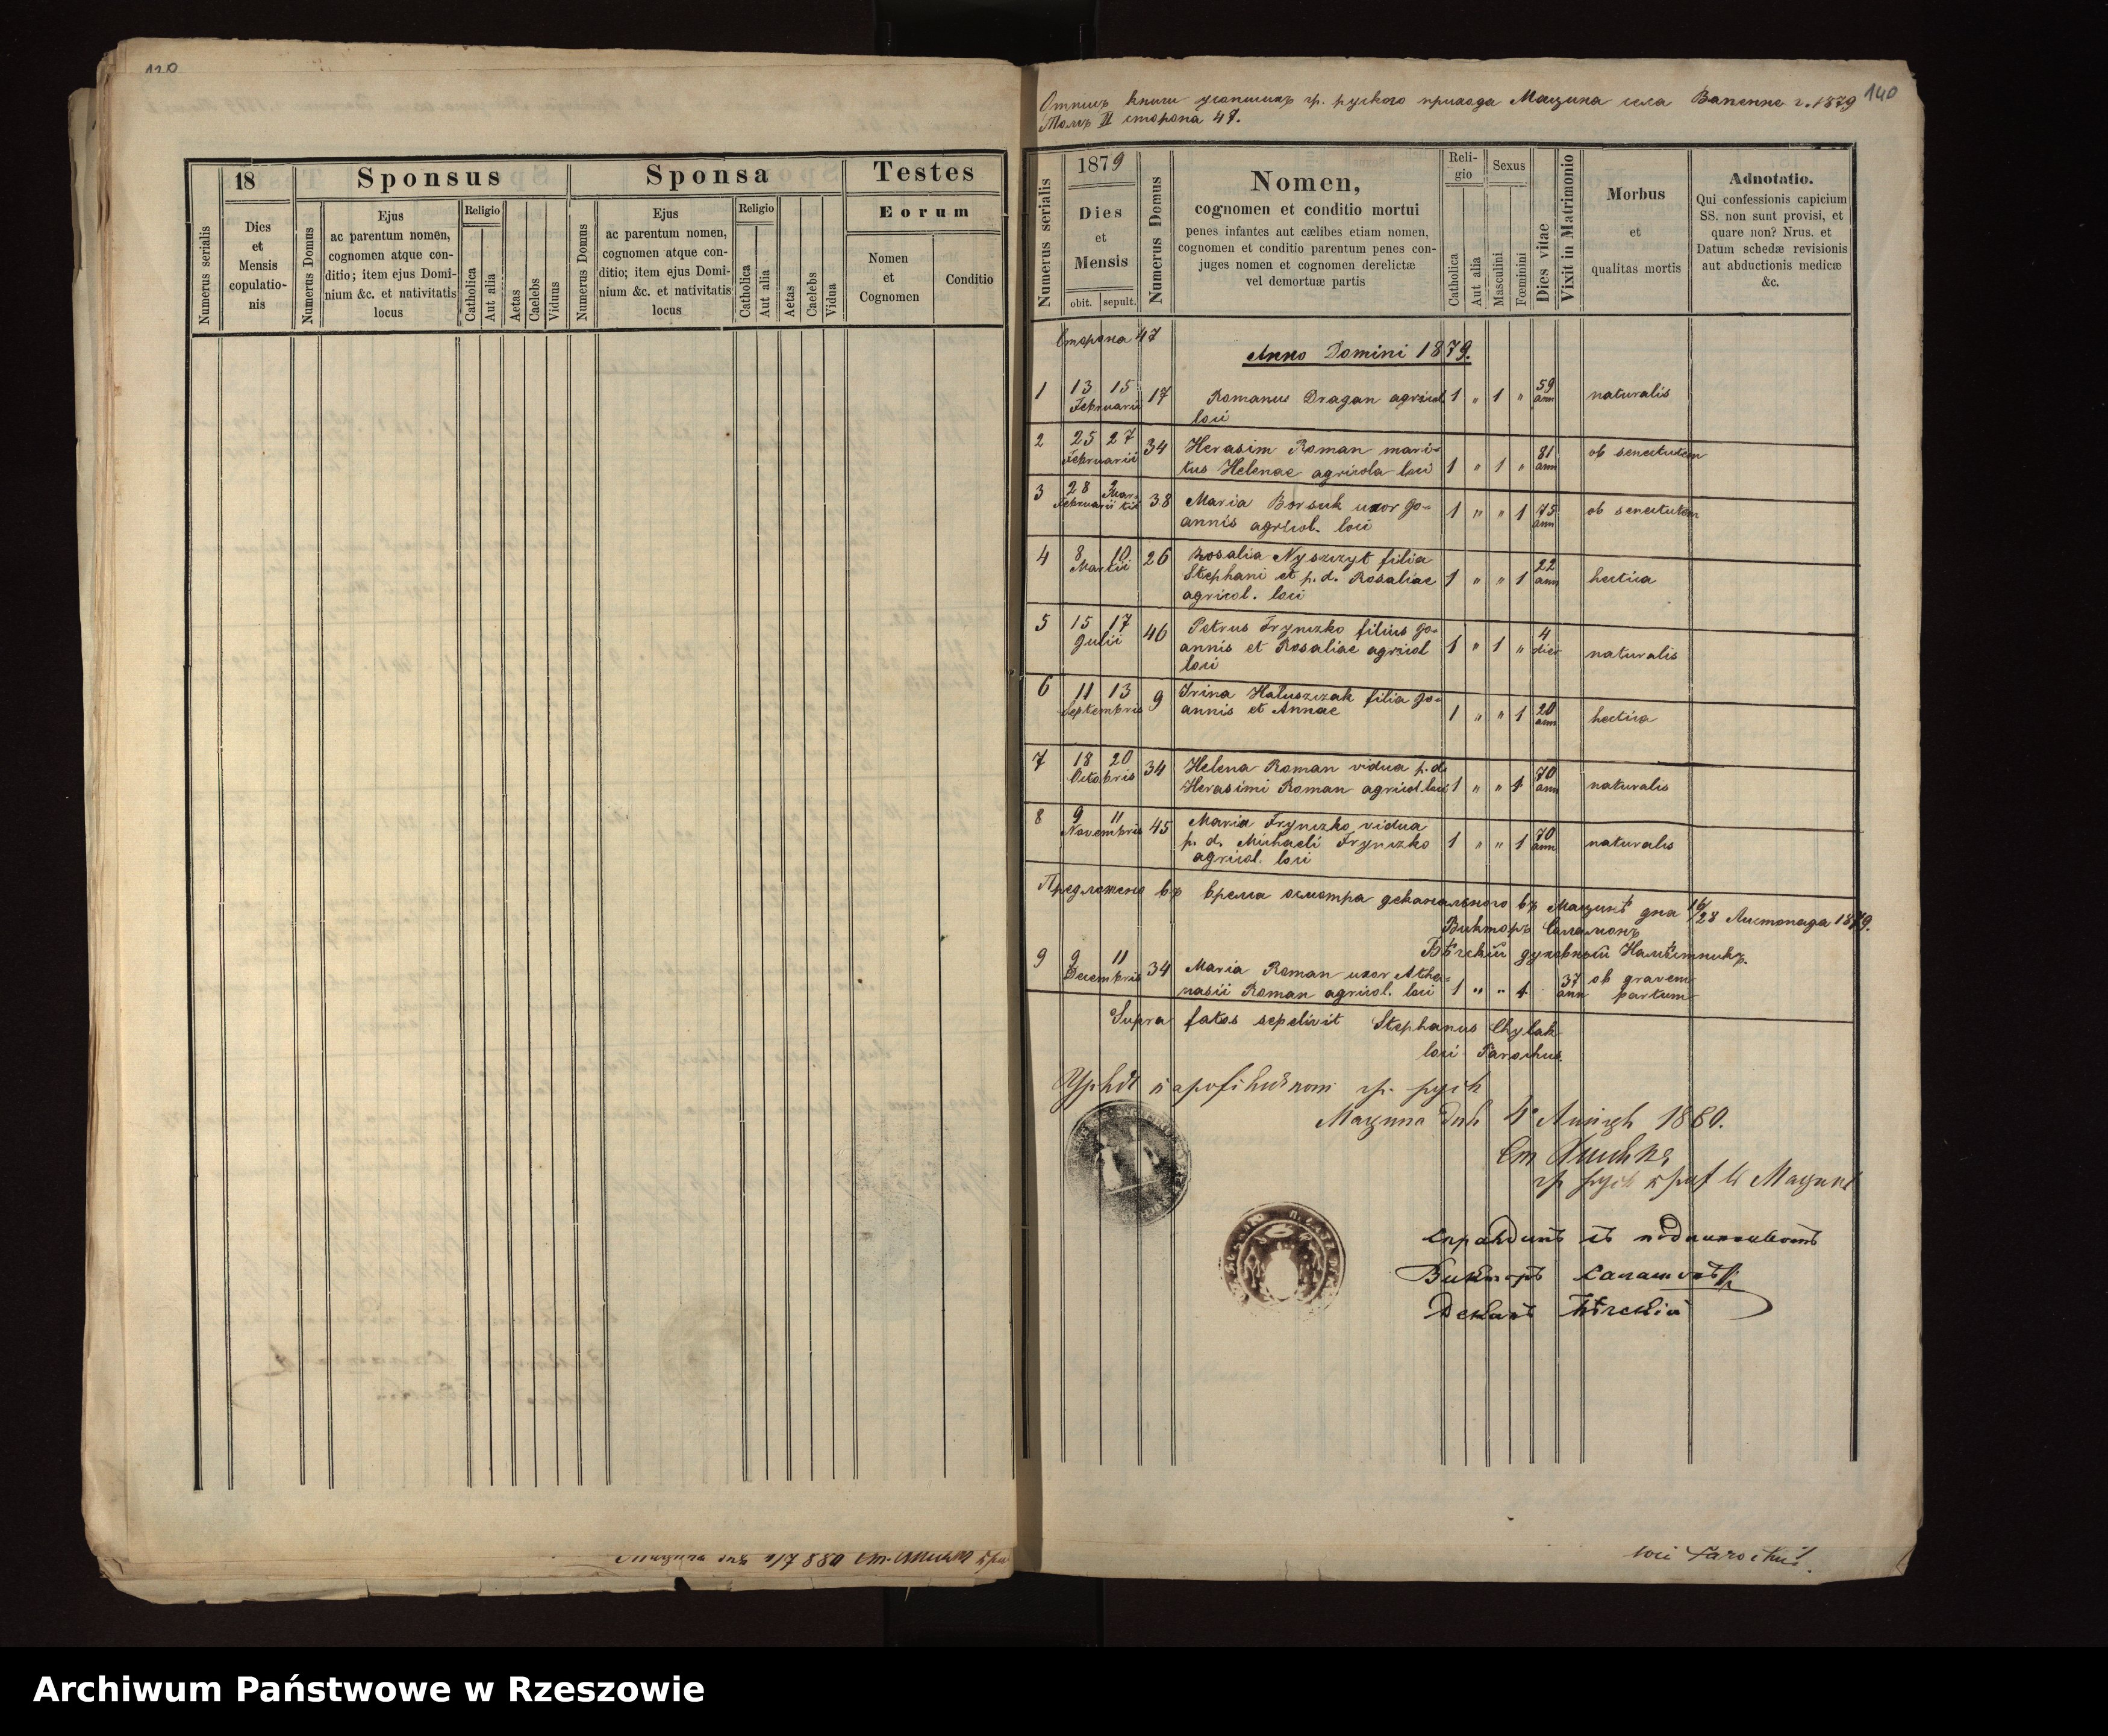 18
Sponsus
Sponsa
Testes
Numerus serialis
Dies
et
Mensis
copulatio-
nis
Numerus Domus
Ejus
ac parentum nomen,
cognomen atque con-
ditio; item ejus Domi-
nium &c. et nativitatis
locus
Religio
Catholica
Aut alia
Aetas
Caelebs
Viduus
Numerus Domus
Ejus
ac parentum nomen,
cognomen atque con-
ditio; item ejus Domi-
nium &c. et nativitatis
locus
Religio
Catholica
Aut alia
Aetas
Caelebs
Vidua
Eorum
Nomen
et
Cognomen
Conditio
140
Отписъ книги усопшихъ гр. руского прихода Мацина села Вапенне г. 1879
Томъ II сторона 47.
Numerus serialis
1879
Dies
et
Mensis
obit. sepult.
Numerus Domus
Nomen,
cognomen et conditio mortui
penes infantes aut cælibes etiam nomen,
cognomen et conditio parentum penes con-
juges nomen et cognomen derelictæ
vel demortuæ partis
Reli-
gio
Catholica
Aut alia
Sexus
Masculini
Fœminini
Dies vitae
Vixit in Matrimonio
Morbus
et
qualitas mortis
Adnotatio.
Qui confessionis capicium
SS. non sunt provisi, et
quare non? Nrus. et
Datum schedæ revisionis
aut abductionis medicæ
&c.
Сторона 47
Anno Domini 1879.
1 13 15 Februarii 17 Romanus Dragan agricol 1 " 1 " 59 ann naturalis
loci
2 25 27 Februarii 34 Herasim Roman mari-
tus Helenae agricola loci 1 " 1 " 81 ann ob senectutem
3 28 Februarii 2 Martii 38 Maria Borsuk uxor Jo-
annis agricol. loci 1 " " 1 75 ann ob senectutem
4 8 10 Martii 26 Rosalia Nyszczyt filia
Stephani et p. d. Rosaliae 1 " " 1 22 ann hectica
agricol. loci
5 15 17 Julii 46 Petrus Fryncko filius Jo-
annis et Rosaliae agricol 1 " 1 " 4 dies naturalis
loci
6 11 13 Septembris 9 Irina Haluszczak filia Jo-
annis et Annae 1 " " 1 20 ann hectica
7 18 20 Octobris 34 Helena Roman vidua p. d.
Herasimi Roman agricol. loci 1 " " 1 70 ann naturalis
8 9 11 Novembris 45 Maria Fryncko vidua
p. d. Michaeli Fryncko 1 " " 1 70 ann naturalis
agricol. loci
Предложено въ время осмотра деканального въ Мацинѣ дна 16/28 Листопада 1879.
Викторъ Саламонъ
Бѣчскій духовный Намѣстникъ.
9 9 11 Decembris 34 Maria Roman uxor Atha-
nasii Roman agricol. loci 1 " " 1 37 ann ob gravem
partum
Supra fatos sepelivit Stephanus Chylak
loci Parochus.
Мацина 1880.
Викторъ
Деканъ Бѣчскій
loci Parochus.